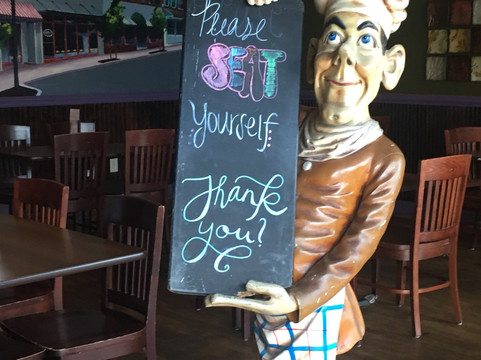 Please
SEAT
Yourself
Thank
you?